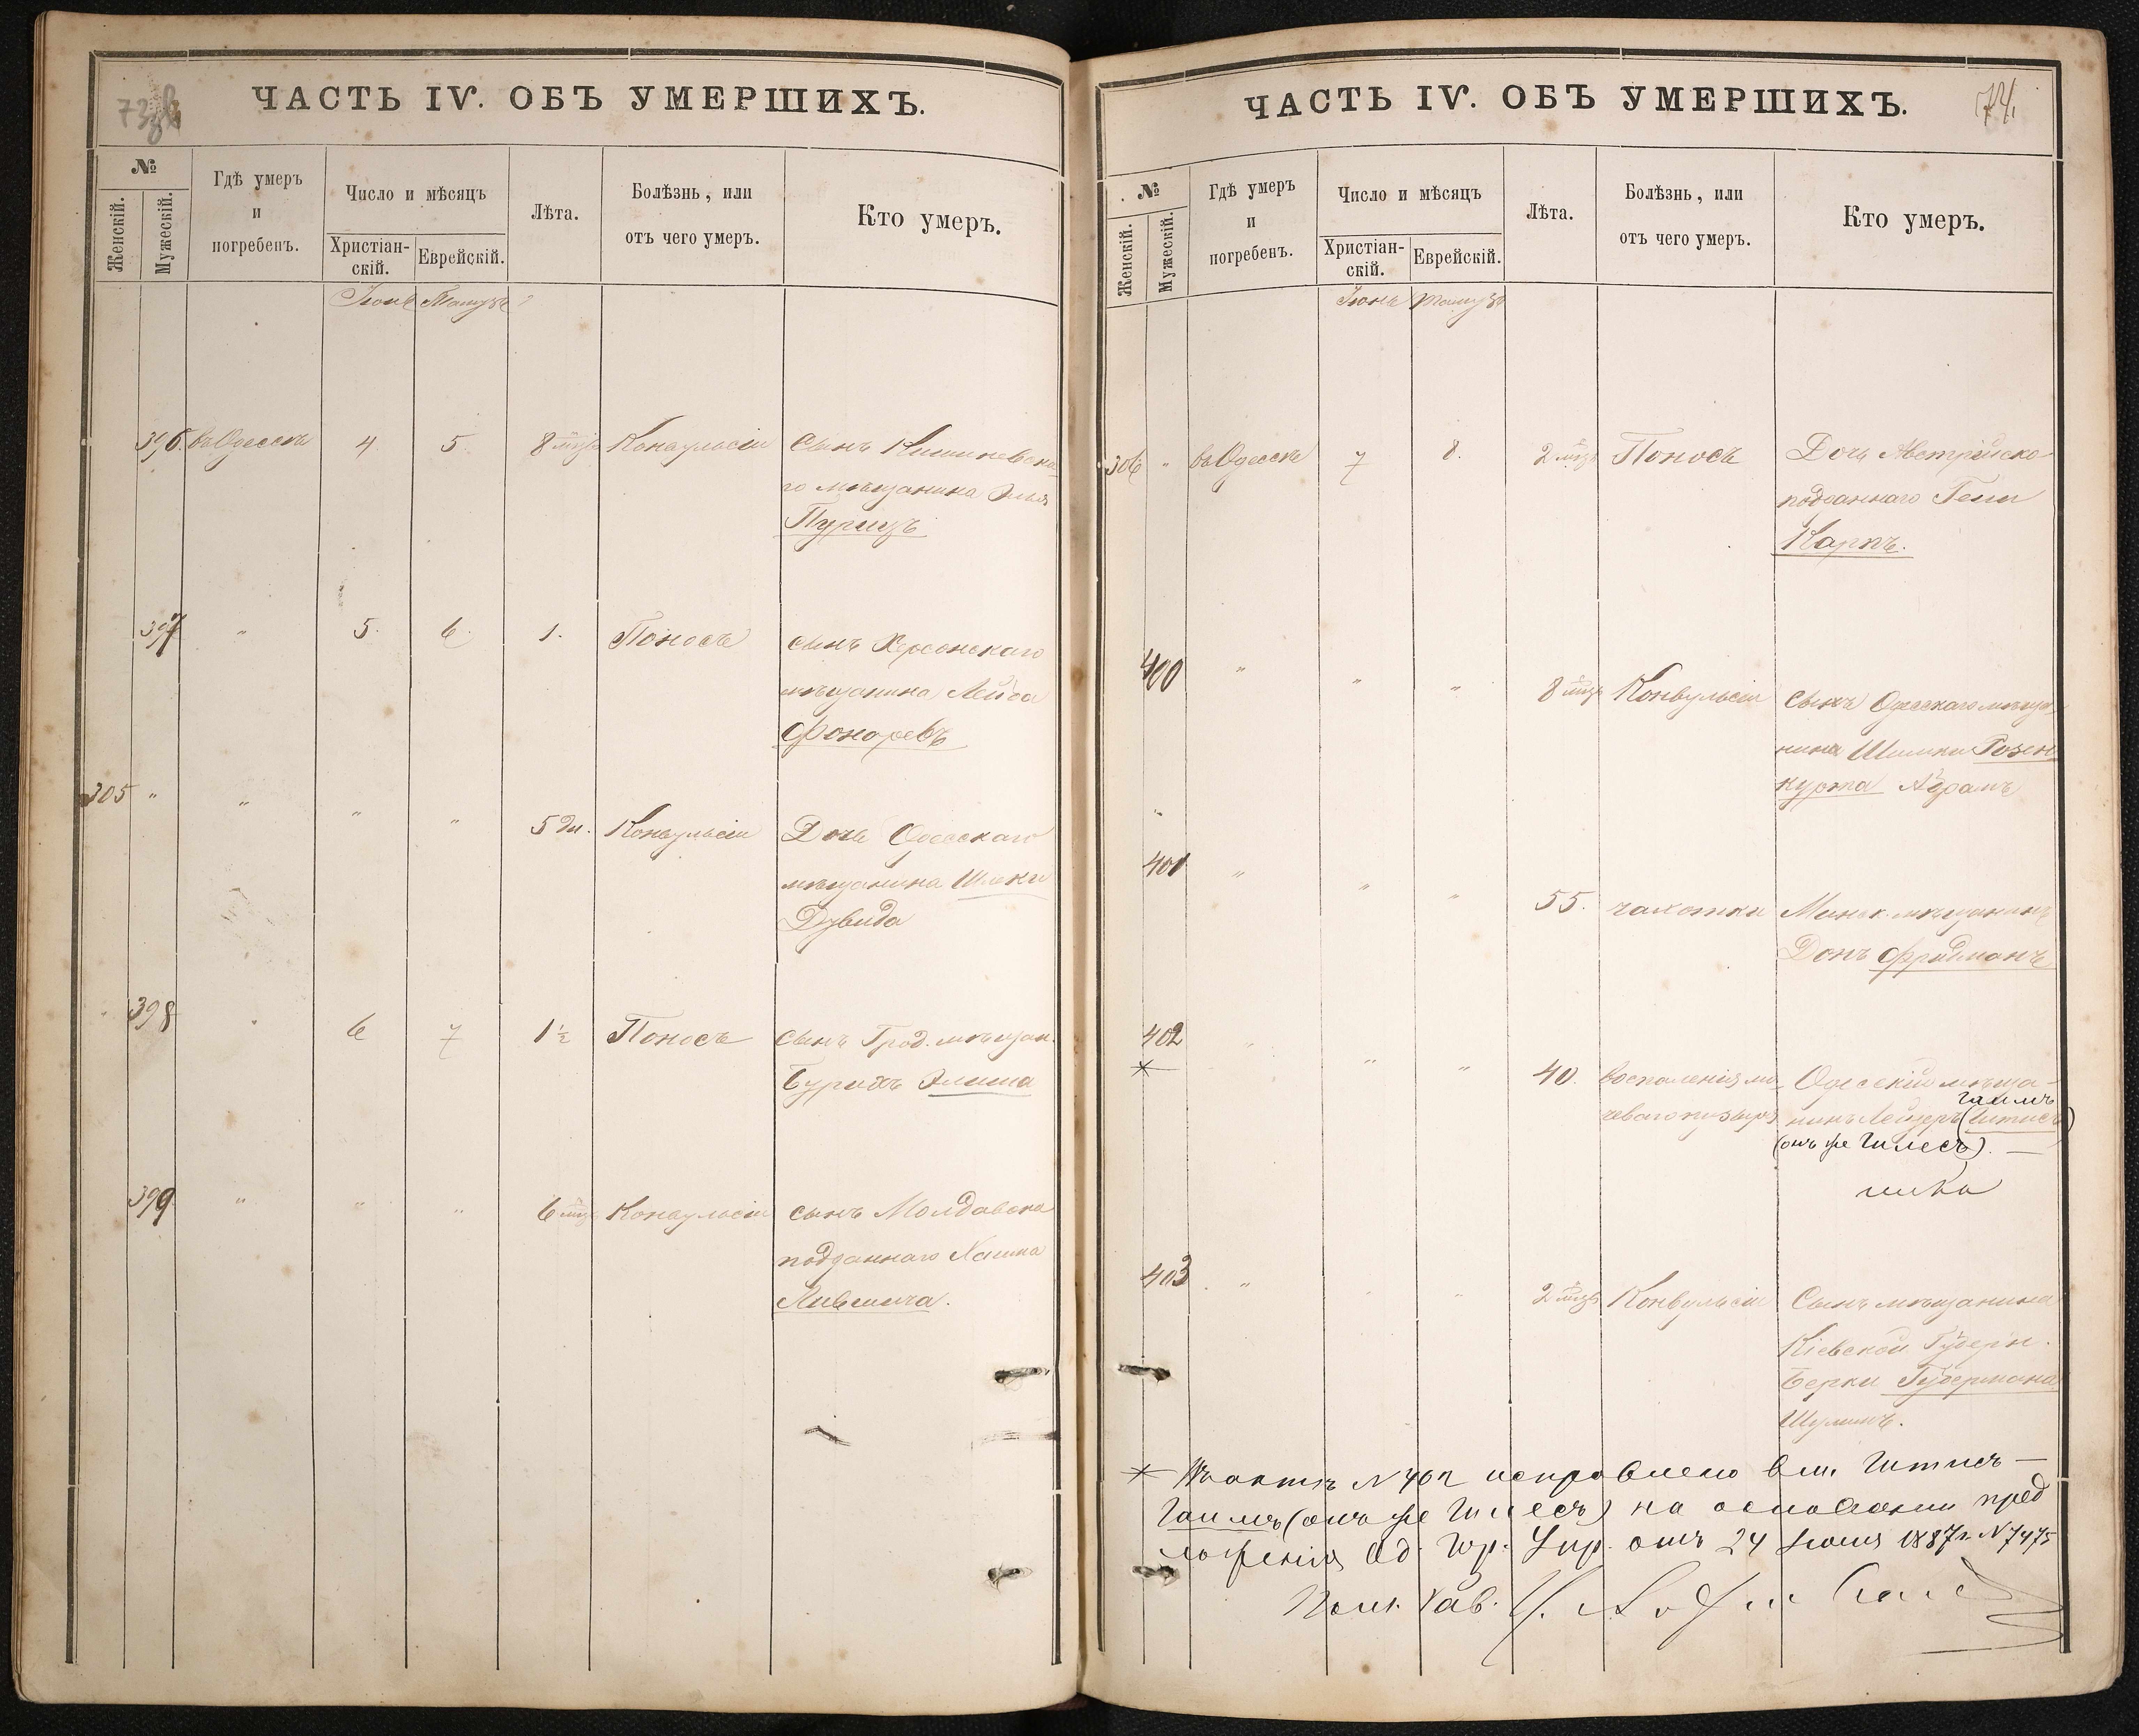 ЧАСТЬ IV. ОБЪ УМЕРШИХЪ.
№
Женскій.
Мужескій.
Гдѣ умеръ
и
погребенъ.
Число и мѣсяцъ
Христіан-
скій.
Еврейскій.
Лѣта.
Болѣзнь, или
отъ чего умеръ.
Кто умеръ.
Іюнь Тамузъ
396. въ Одессѣ 4. 5. 8 мѣц Конвульсіи Сынъ Кишиневска-
го мѣщанина Эльи
Пурицъ
397 " 5. 6. 1. Поносъ сынъ Херсонскаго
мѣщанина Лейба
Фонаревъ
305 " " " " 5 дн. Конвульсіи Дочь Одесскаго
мѣщанина
Дувида
398 " 6 7 1½ Поносъ сынъ Грод. мѣщан.
399 " " " 6 мѣц Конвульсіи сынъ Молдавска
подданнаго Хаима
Лившича.
ЧАСТЬ IV. ОБЪ УМЕРШИХЪ.
74
№
Женскій.
Мужескій.
Гдѣ умеръ
и
погребенъ.
Число и мѣсяцъ
Христіан-
скій.
Еврейскій.
Лѣта.
Болѣзнь, или
отъ чего умеръ.
Кто умеръ.
Іюнь Тамузъ
306 " въ Одессѣ 7 8. 2 мѣц Поносъ Дочь Австрійско
подданнаго
Карпъ.
400 " " " 8 мѣц Конвульсіи сынъ Одесскаго мѣща-
нина Шимки Розен-
курта Абрамъ
401 " " " 55. чахотки Минск. мѣщанинъ
Донъ Фридманъ
402 " " " 40. воспаленія мо- Одесскій мѣща-
* чеваго пузыря нинъ Лейзеръ (Гитисъ)
Гаимъ
(онъ же Гилесъ). —
403 " " " 2 мѣц Конвульсіи Сынъ мѣщанина
Кіевской Губерн.
Берки Губермана
Шулимъ.
* Въ актѣ N 402 исправлено вм. Гитисъ —
Гаимъ (онъ же Гилесъ) на основаніи пред
ложенія Од. Гор. Упр. отъ 24 Іюня 1887 г. N 7475
Пом. Рав.